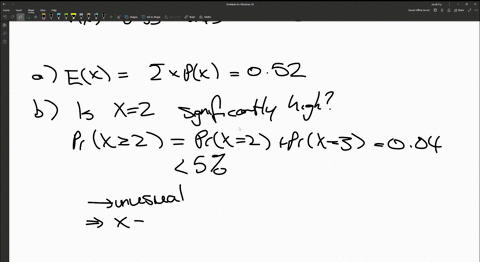 a) E(X) = Σxp(x) = 0.52
b) Is X=2 significantly high?
Pr(X≥2) = Pr(X=2) + Pr(X=3) = 0.04
< 5%
→ unusual
⇒ X -